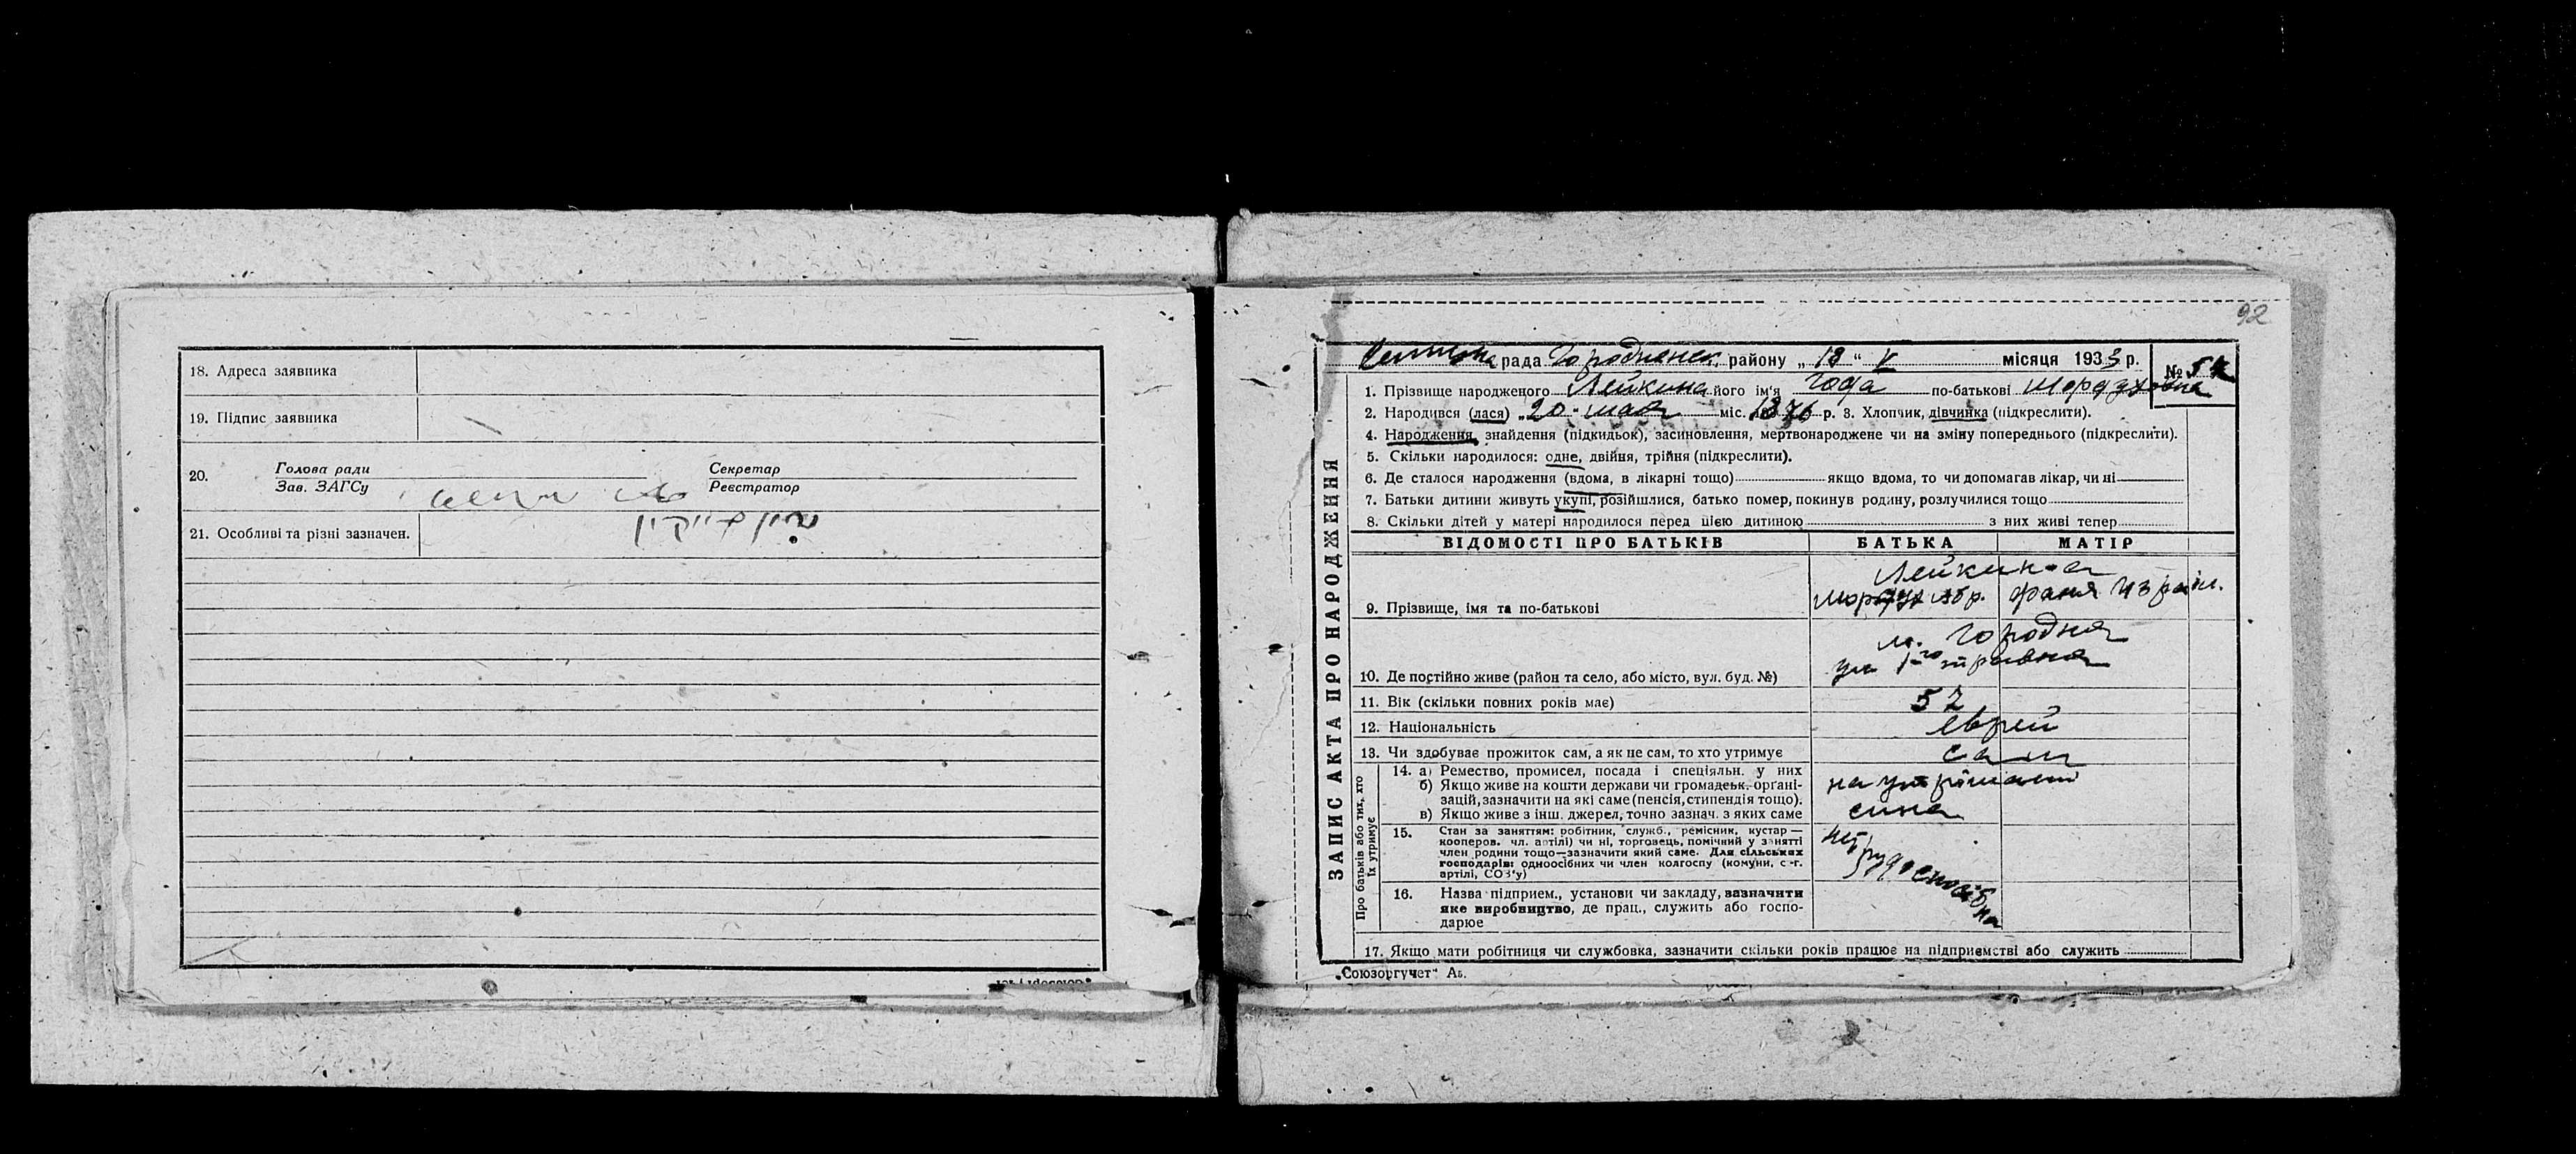 18. Адреса заявника
19. Підпис заявника
20.
Голова ради
Зав. ЗАГСу
Секретар
Реєстратор
21. Особливі та різні зазначен.
92
ЗАПИС АКТА ПРО НАРОДЖЕННЯ
рада Городнянск. району „ 18 “ V місяця 1933 р.
№ 54
1. Прізвище народженого Лейкина його ім'я Года по-батькові Мордуховна
2. Народився (лася) „ 20 - мая міс. 1876 р. 3. Хлопчик, дівчинка (підкреслити).
4. Народження, знайдення (підкидьок), засиновлення, мертвонароджене чи на зміну попереднього (підкреслити).
5. Скільки народилося: одне, двійня, трійня (підкреслити).
6. Де сталося народження (вдома, в лікарні тощо) якщо вдома, то чи допомагав лікар, чи ні
7. Батьки дитини живуть укупі, розійшлися, батько помер, покинув родину, розлучилися тощо
8. Скільки дітей у матері народилося перед цією дитиною з них живі тепер
ВІДОМОСТІ ПРО БАТЬКІВ БАТЬКА МАТІР
9. Прізвище, імя та по-батькові
Лейкина
Мордух Абр. Фаня Израил.
10. Де постійно живе (район та село, або місто, вул. буд. №)
м. Городня
ул 1-го травня
11. Вік (скільки повних років має) 57
12. Національність еврей
13. Чи здобуває прожиток сам, а як не сам, то хто утримує сам
Про батьків або тих, хто їх утримує
14. а) Ремество, промисел, посада і спеціяльн. у них
б) Якщо живе на кошти держави чи громадськ. органі-
зацій, зазначити на які саме (пенсія, стипендія тощо).
в) Якщо живе з інш. джерел, точно зазнач. з яких саме
на утриманні
сина
15. Стан за заняттям: робітник, служб., ремісник, кустар —
кооперов. чл. артілі) чи ні, торговець, помічний у занятті
член родини тощо—зазначити який саме. Для сільських
господарів: одноосібних чи член колгоспу (комуни, с.-г.
артілі, СОЗ'у)
нетрудоспосібна
16. Назва підприєм., установи чи закладу, зазначити
яке виробництво, де прац., служить або госпо-
дарює
17. Якщо мати робітниця чи службовка, зазначити скільки років працює на підприємстві або служить
„Союзоргучет“